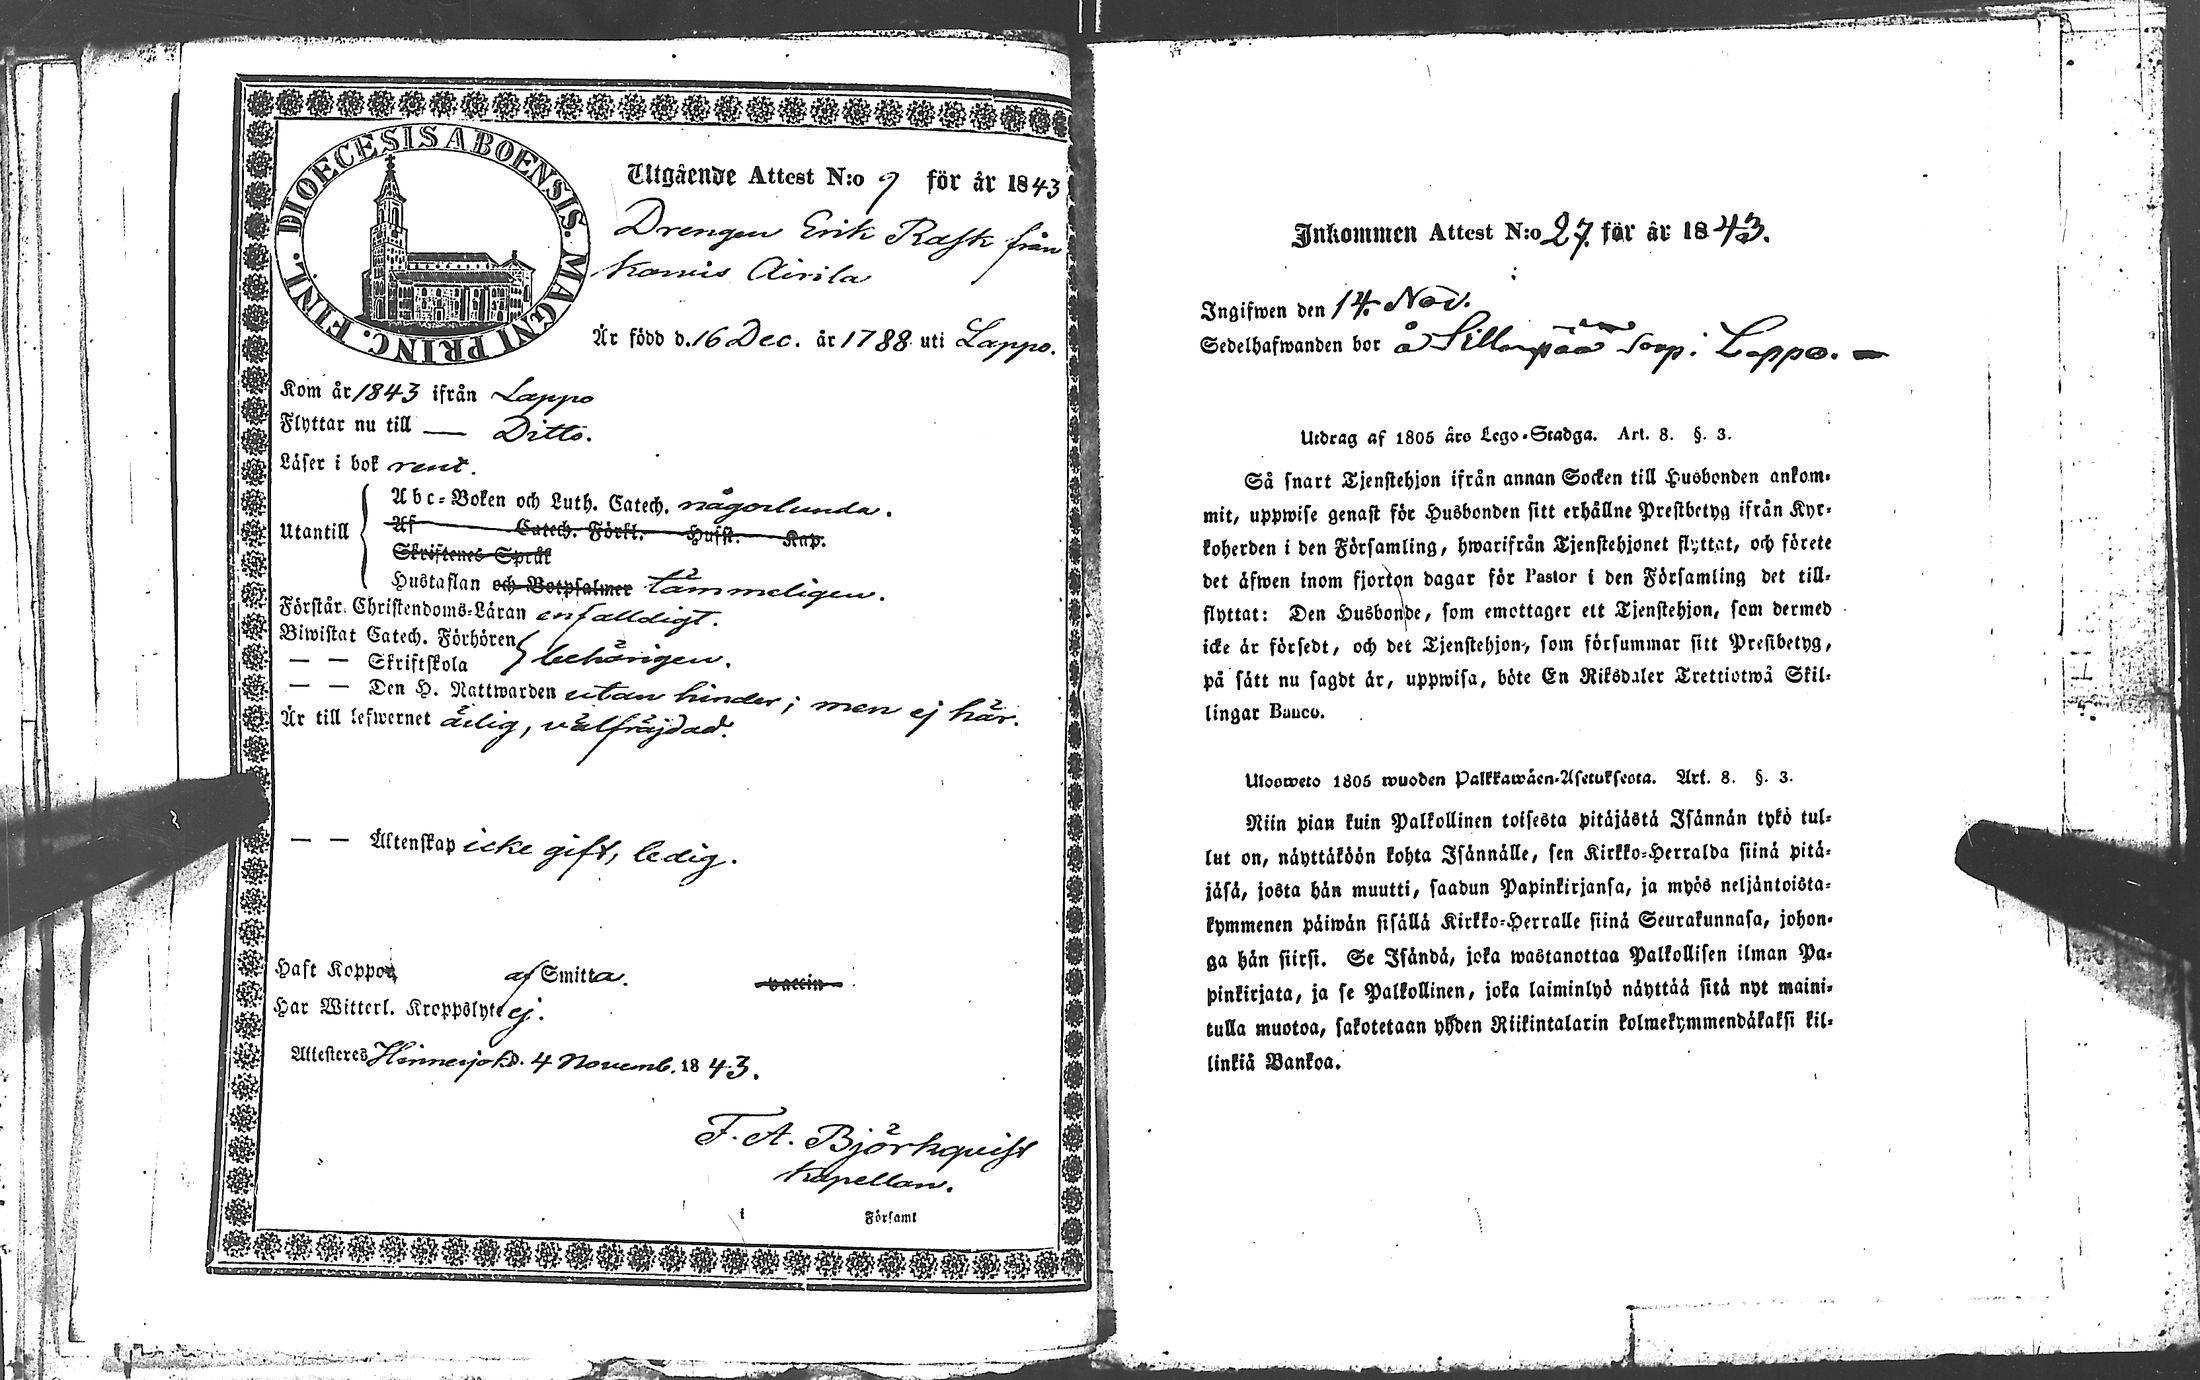 DIOECESIS ABOENSIS. MAGNI PRINC. FINL.
Utgående Attest N:o 9 för år 1843
Drengen Erik Rask från
Kauvis Airila
Är född d. 16 Dec. år 1788 uti Lappo.
Kom år 1843 ifrån Lappo
Flyttar nu till — Ditto.
Läser i bok rent.
Utantill
Abc-Boken och Luth. Catech. någorlunda.
Af Catech. Förkl. Husst. Kap.
Skriftenes Språk
Hustaflan och Botpsalmer tämmeligen.
Förstår Christendoms-Läran enfalldigt.
Biwistat Catech. Förhören
— — Skriftskola behörigen.
— — Den H. Nattwarden utan hinder; men ej här.
Är till lefwernet ärlig, välfräjdad.
— — Äktenskap icke gift, ledig.
Haft Koppor af Smitta. vaccin
Har Witterl. Kroppslyte ej.
Attesteres Hinnerjoki d. 4 Novemb. 1843.
F. A. Björkqvist
Kapellan.
i Församl
Inkommen Attest N:o 27. för år 1843.
Ingifwen den 14. Nov.
Sedelhafwanden bor å Sillanpää Torp i Lappo. —
Utdrag af 1805 års Lego-Stadga. Art. 8. §. 3.
Så snart Tjenstehjon ifrån annan Socken till Husbonden ankom-
mit, uppwise genast för Husbonden sitt erhållne Prestbetyg ifrån Kyr-
koherden i den Församling, hwarifrån Tjenstehjonet flyttat, och förete
det äfwen inom fjorton dagar för Pastor i den Församling det till-
flyttat: Den Husbonde, som emottager ett Tjenstehjon, som dermed
icke är försedt, och det Tjenstehjon, som försummar sitt Prestbetyg,
på sätt nu sagdt är, uppwisa, böte En Riksdaler Trettiotwå Skil-
lingar Banco.
Ulosweto 1805 wuoden Palkkawäen-Asetuksesta. Art. 8. §. 3.
Niin pian kuin Palkollinen toisesta pitäjästä Isännän tykö tul-
lut on, näyttäköön kohta Isännälle, sen Kirkko-Herralda siinä pitä-
jäsä, josta hän muutti, saadun Papinkirjansa, ja myös neljäntoista-
kymmenen päiwän sisällä Kirkko-Herralle siinä Seurakunnasa, johon-
ga hän siirsi. Se Isändä, joka wastanottaa Palkollisen ilman Pa-
pinkirjata, ja se Palkollinen, joka laiminlyö näyttää sitä nyt maini-
tulla muotoa, sakotetaan yhden Riikintalarin kolmekymmendäkaksi kil-
linkiä Bankoa.